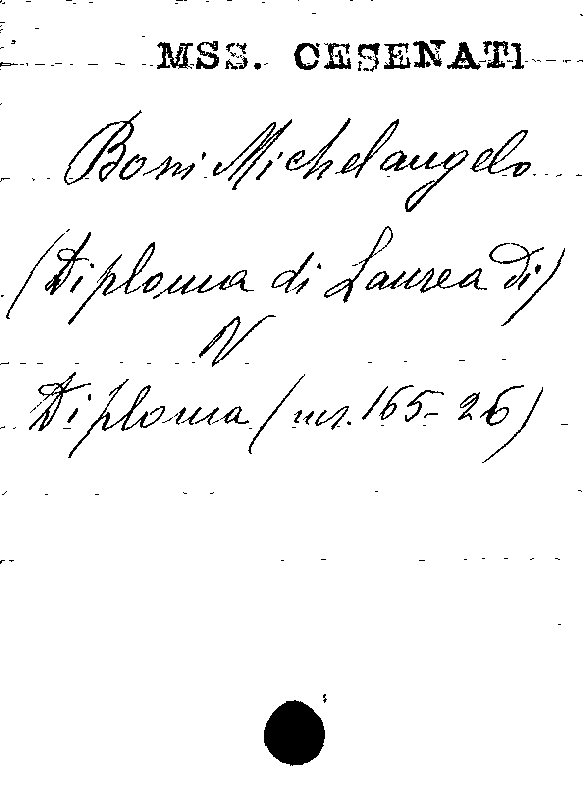 MSS. CESENATI
Boni Michelangelo
(Diploma di Laurea di)
V
Diploma (ms. 165-26)